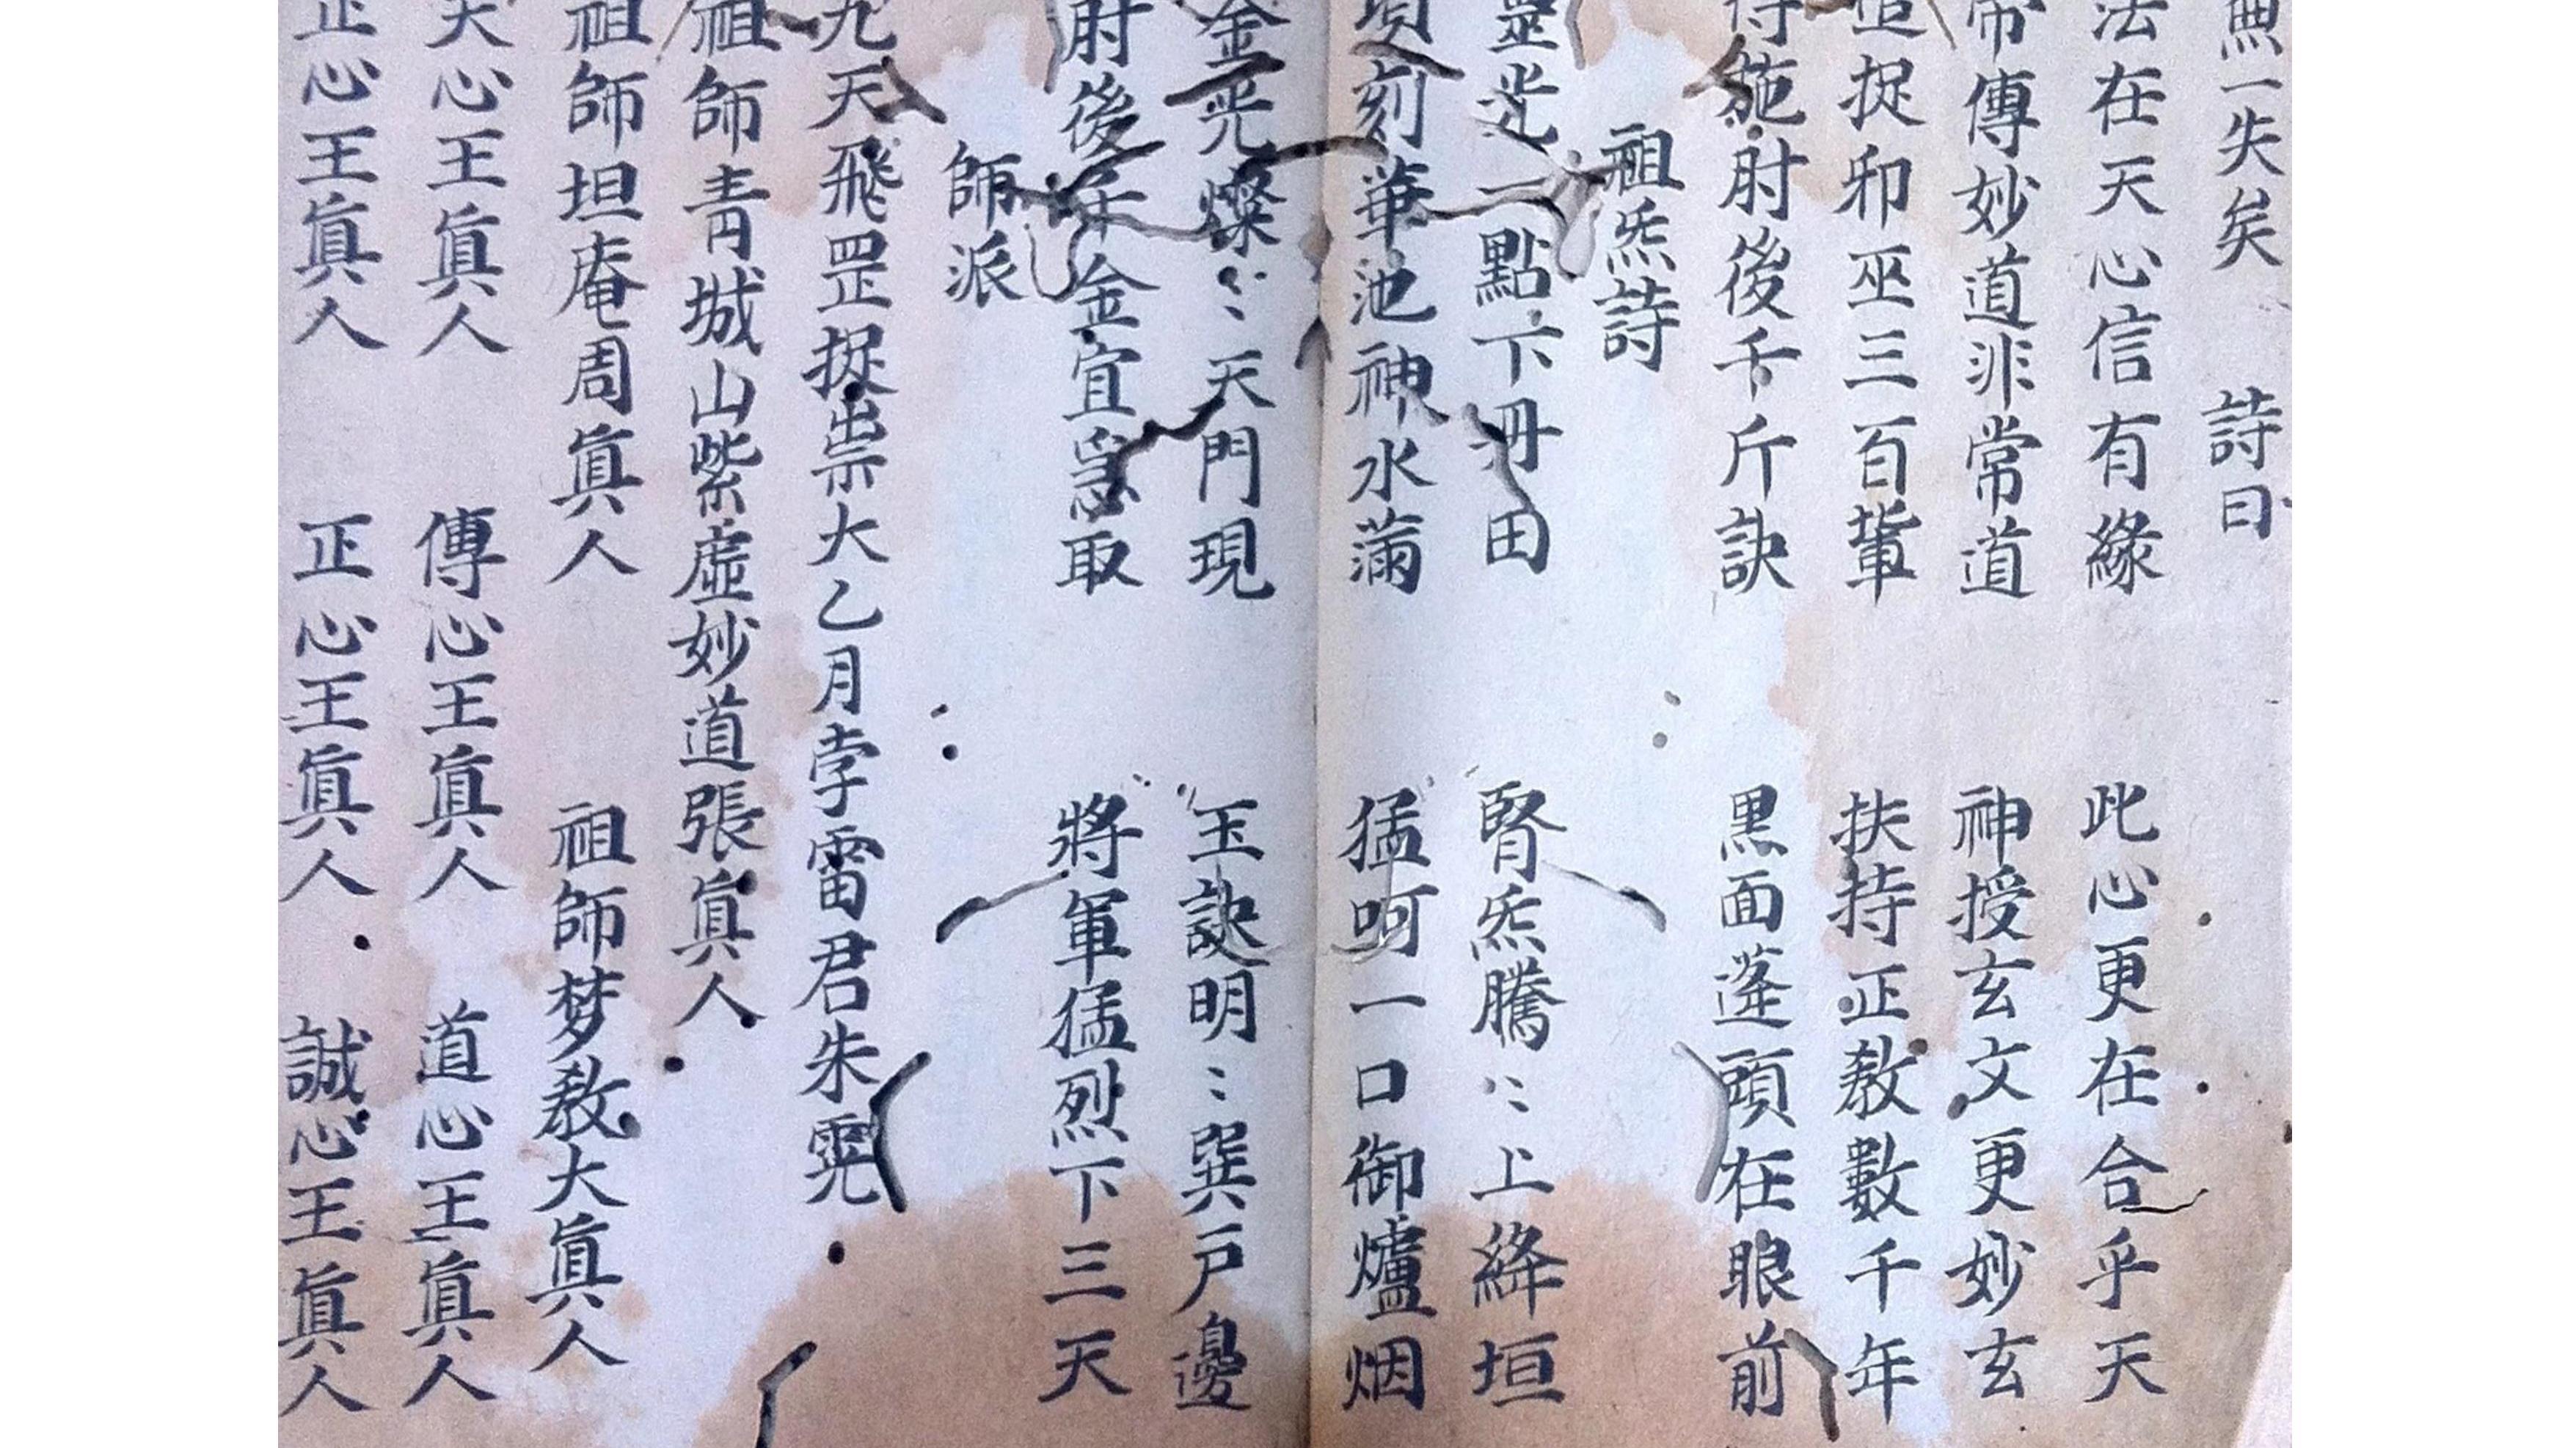 無一失矣 詩曰
法在天心信有緣 此心更在合乎天
帝傳妙道非常道 神授玄文更妙玄
追捉卯巫三百輩 扶持正教數千年
侍施肘後千斤訣 黒面蓬頭在眼前
祖炁詩
罡光一點下丹田 腎炁騰〻上絳垣
頃刻華池神水滿 猛呵一口御爐烟
金光燦〻天門現 玉訣明〻巽戸邊
肘後千金宜急取 將軍猛烈下三天
師派
九天飛罡捉祟大乙月孛雷君朱
祖師青城山紫虛妙道張眞人
祖師坦庵周眞人 祖師梦教大眞人
天心王眞人 傳心王眞人 道心王眞人
正心王眞人 正心王眞人 誠心王眞人